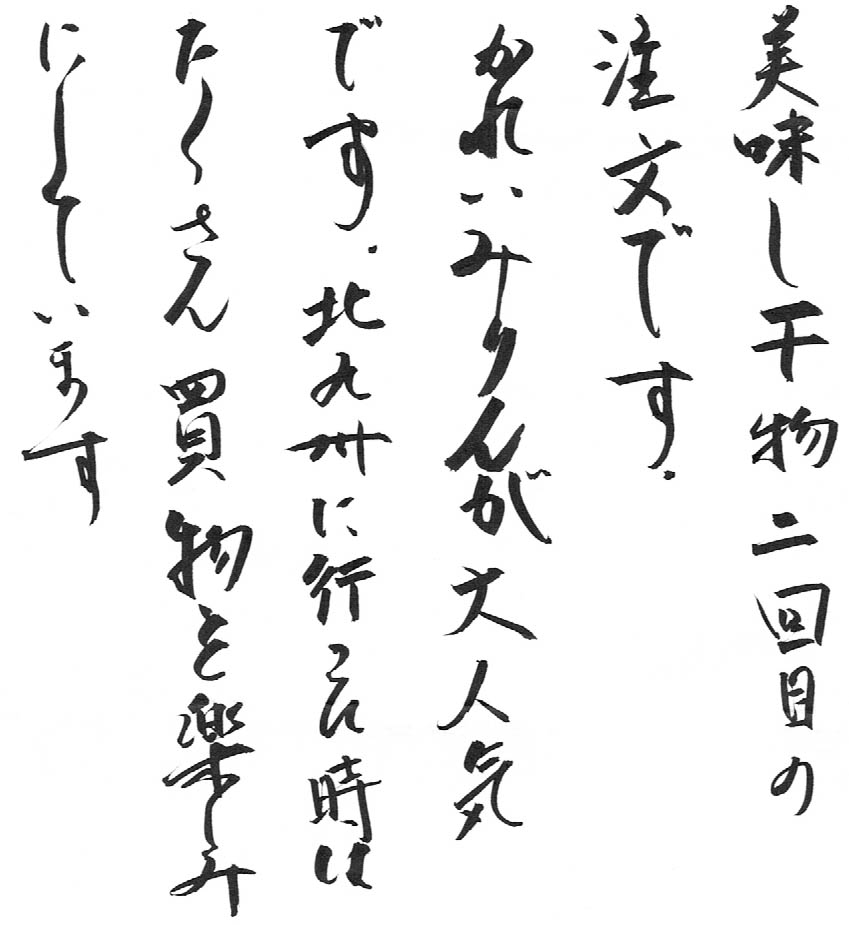 美味し干物二回目の
注文です。
かれいみりんが大人気
です。北九州に行った時は
たくさん買物を楽しみ
にしています